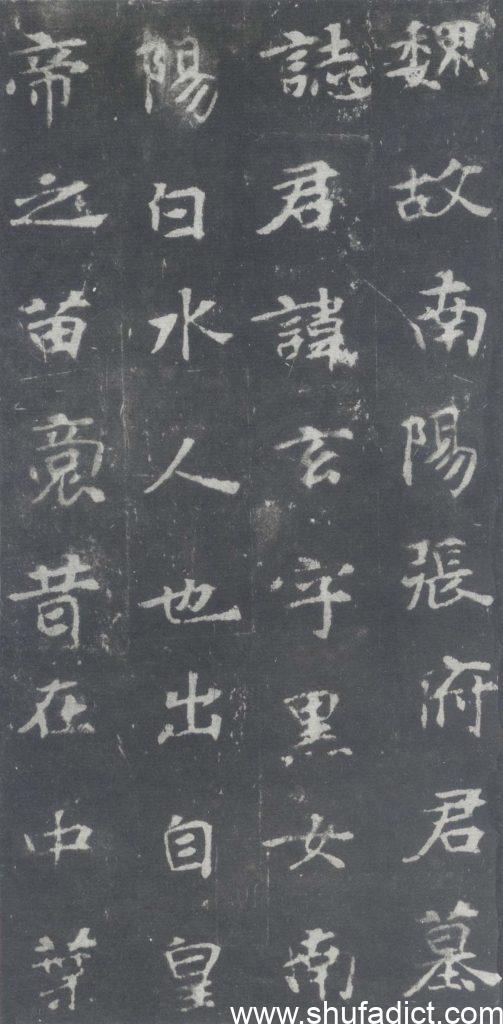 魏故南陽張府君墓
誌君諱玄字黑女南
陽白水人也出自皇
帝之苗裔昔在中葉
www.shufadict.com